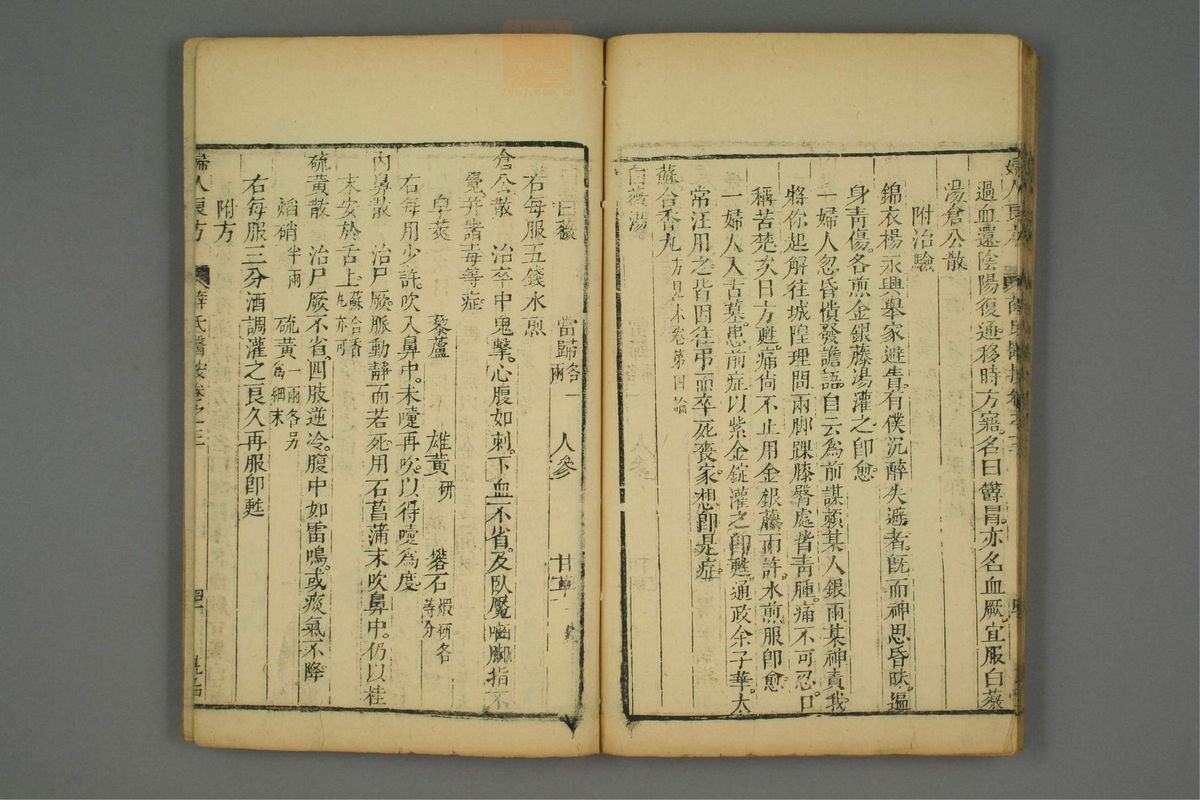 婦人良方
過血還陰陽復通移時方寤名曰鬱冒亦名血厥宜服白薇
湯倉公散
附治驗
錦衣楊永興舉家避青有僕沉醉失避者既而神思昏昧遍
身青傷各煎金銀藤湯灌之即愈
一婦人忽昏憒發譫語自云為前謀賴某人銀兩某神責我
將你起解往城隍理問兩脚踝膝臀處皆青腫痛不可忍口
稱苦楚次日方甦痛尙不止用金銀藤兩許水煎服即愈
一婦人入古墓患前症以紫金錠灌之即甦通政余子華太
常汪用之皆因往弔而卒死喪家想即是症
蘇合香丸方見本卷第四論
白薇湯
白薇 當歸各一兩 人參 甘草
右每服五錢水煎
倉公散 治卒中鬼擊心腹如刺下血不省及臥魘嚙脚指不
覺并諸毒等症
皂莢 藜蘆 雄黃研 礬石煆研各等分
右每用少許吹入鼻中未嚏再吹以得嚏為度
內鼻散 治尸厥脈動靜而若死用石菖蒲末吹鼻中仍以桂
末安於舌上蘇合香丸亦可
硫黃散 治尸厥不省四肢逆冷腹中如雷鳴或痰氣不降
焰硝半兩 硫黃一兩各另為細末
右每服三分酒調灌之良久再服即甦
附方
婦人良方 薛氏醫按卷之三